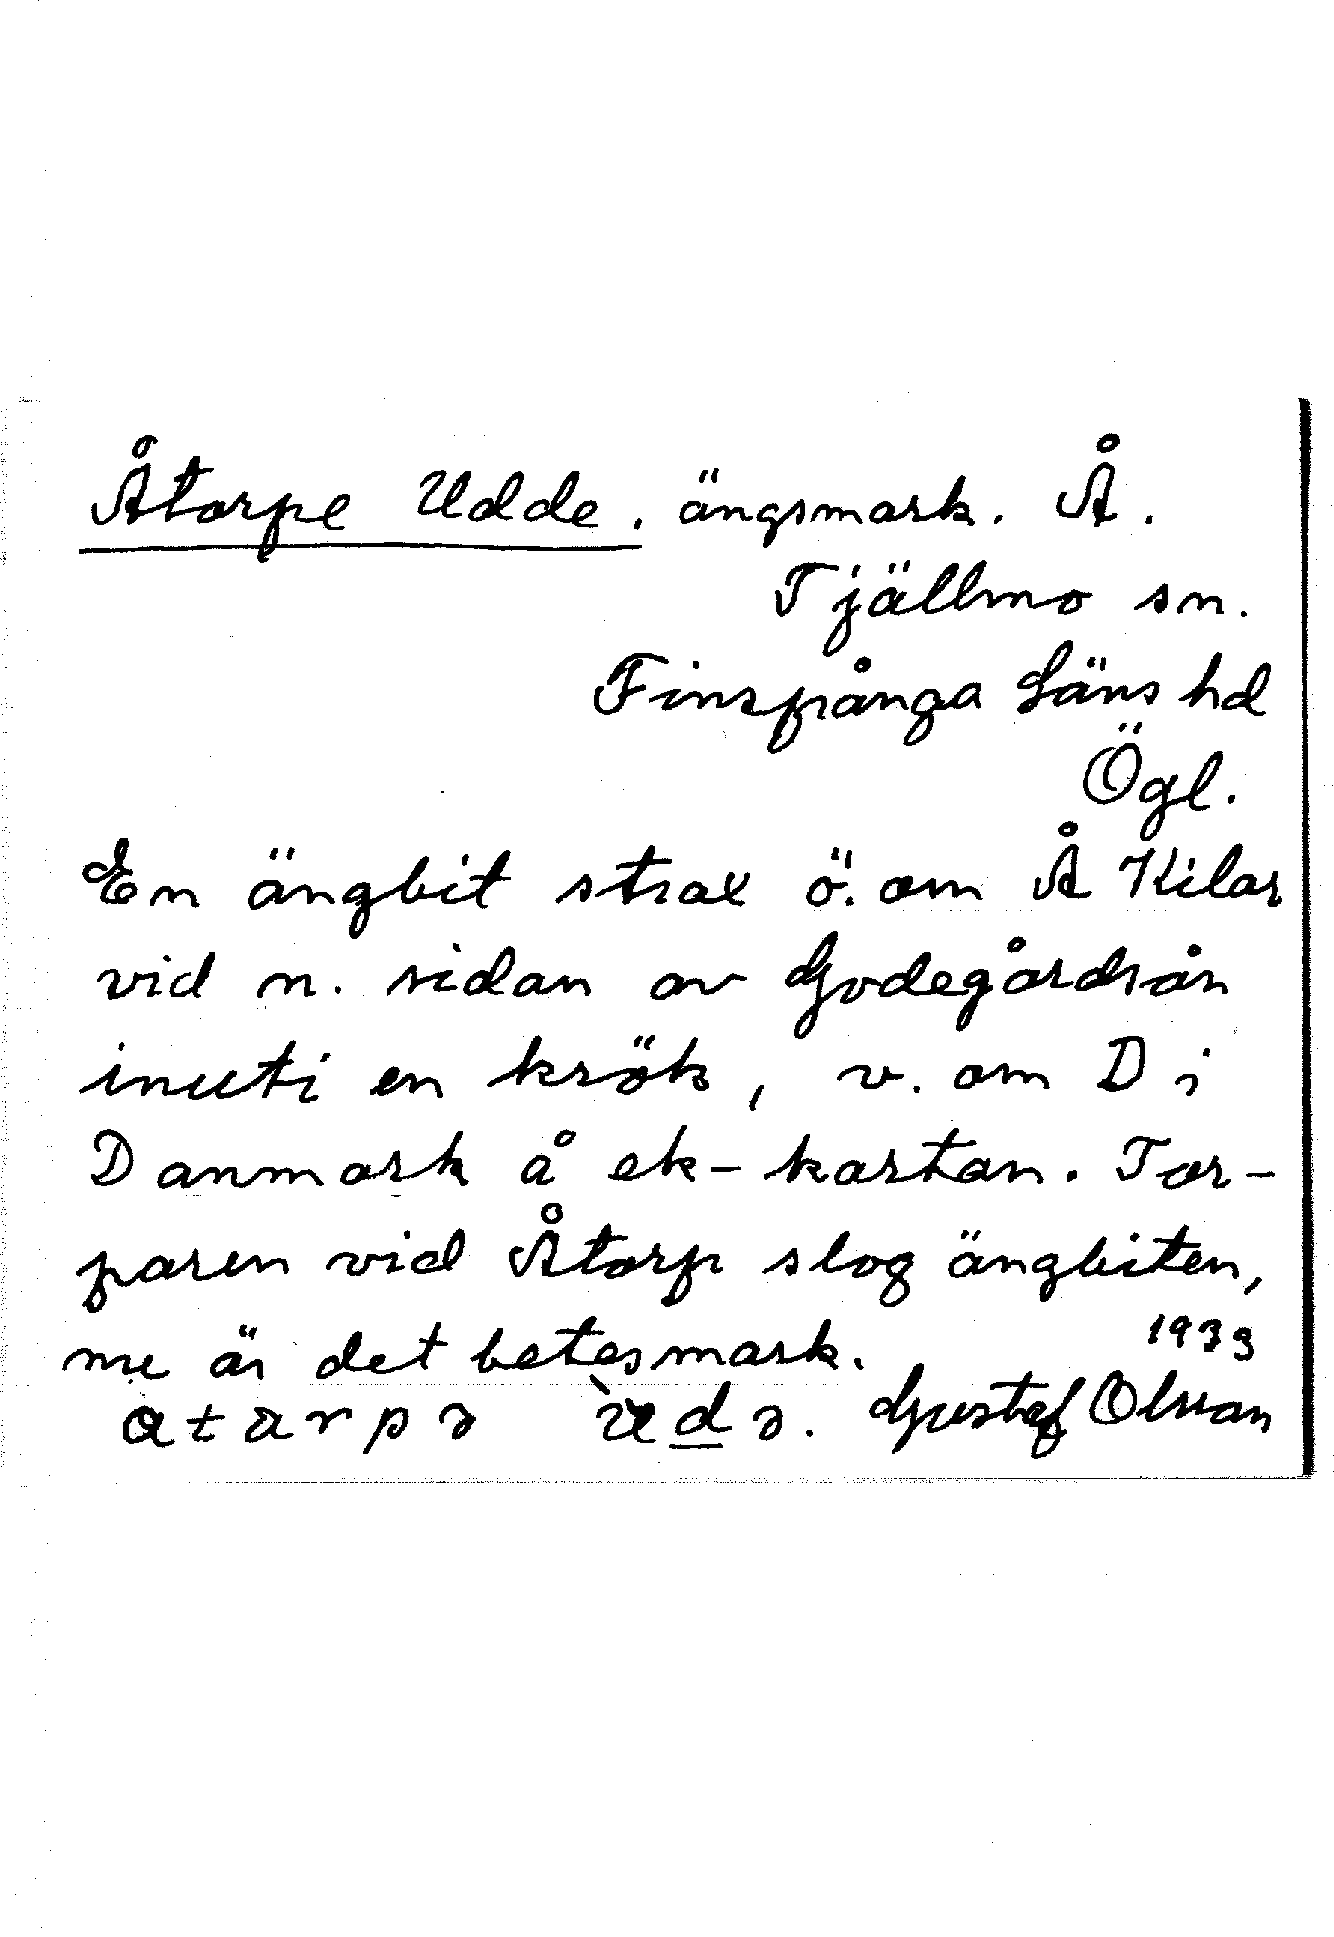 Åtorpe Udde. ängsmark. Å.
Tjällmo sn.
Finspånga Läns hd
Ögl.
En ängbit strax ö. om Å Kilar
vid n. sidan av Godegårdsån
inuti en krök, v. om D i
Danmark å ek-kartan. Tor-
paren vid Åtorp slog ängbiten,
nu är det betesmark. 1939
atarpə ùdə. Gustaf Olsson